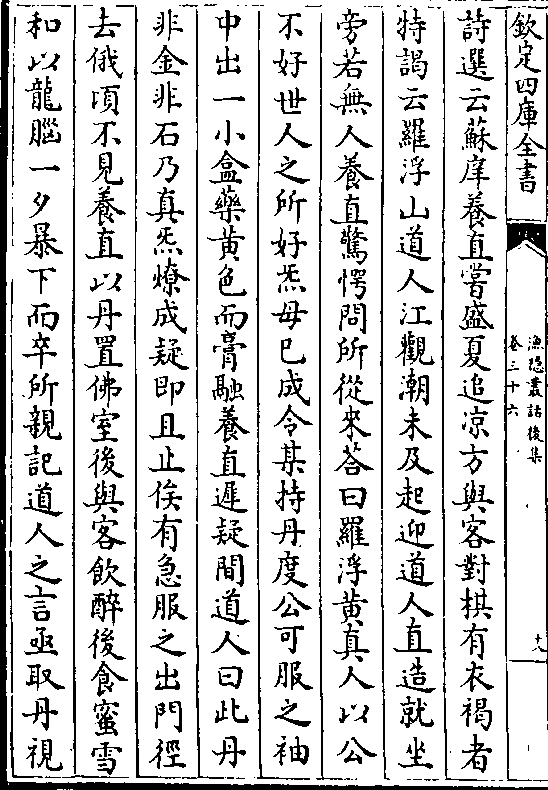 欽定四庫全書
漁隱叢話後集
卷三十六
十八
詩選云蘇庠養直嘗盛夏追凉方與客對棋有衣褐者
特謁云羅浮山道人江觀潮未及起迎道人直造就坐
旁若無人養直驚愕問所從來荅曰羅浮黄真人以公
不好世人之所好炁毋已成令某持丹度公可服之袖
中出一小盒藥黄色而膏融養直遲疑間道人曰此丹
非金非石乃真炁燎成疑即且止俟有急服之出門徑
去俄頃不見養直以丹置佛室後與客飲醉後食蜜雪
和以龍腦一夕暴下而卒所親記道人之言亟取丹視